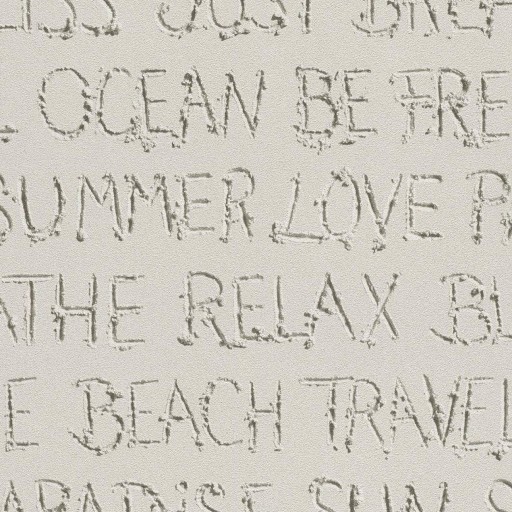 LISS JUST BREA
OCEAN BE FREE
SUMMER LOVE P
ATHE RELAX BL
E BEACH TRAVEL
PARADISE SUN S